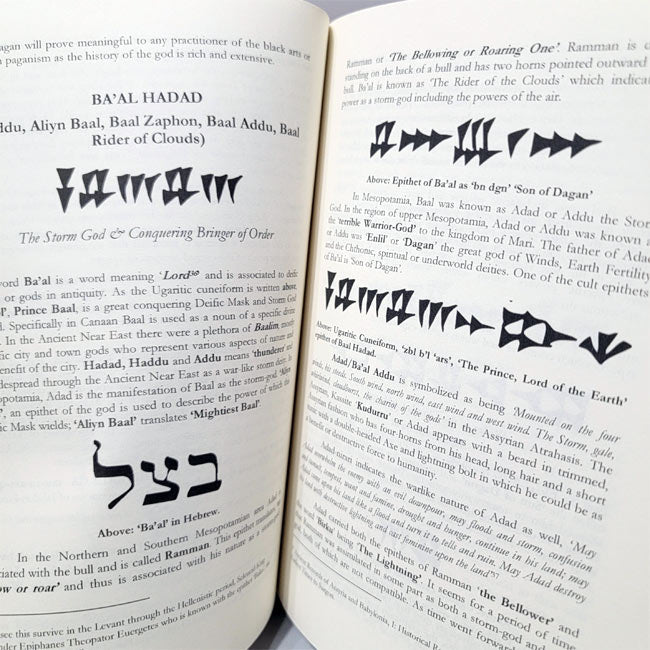 agan will prove meaningful to any practitioner of the black arts or
paganism as the history of the god is rich and extensive.
BA'AL HADAD
ddu, Aliyn Baal, Baal Zaphon, Baal Addu, Baal
Rider of Clouds)
The Storm God & Conquering Bringer of Order
word Ba'al is a word meaning 'Lord' and is associated to deific
or gods in antiquity. As the Ugaritic cuneiform is written above,
Prince Baal, is a great conquering Deific Mask and Storm God
Specifically in Canaan Baal is used as a noun of a specific
In the Ancient Near East there were a plethora of Baalim, mostly
fic city and town gods who represent various aspects of nature and
benefit of the city. Hadad, Haddu and Addu means 'thunderer' and
despread through the Ancient Near East as a war-like storm deity. In
opotamia, Adad is the manifestation of Baal as the storm-god.
an epithet of the god is used to describe the power of which the
fic Mask wields; 'Aliyn Baal' translates 'Mightiest Baal'.
בצל
Above: 'Ba'al' in Hebrew.
In the Northern and Southern Mesopotamian area Adad is
ciated with the bull and is called Ramman. This epithet translates
ow or roar' and thus is associated with his nature as a storm
see this survive in the Levant through the Hellenistic period, Seleucid King
der Epiphanes Theopator Euergetes who is known with the epithet
Ramman or 'The Bellowing or Roaring One'. Ramman is
standing on the back of a bull and has two horns pointed outward
Baal is known as 'The Rider of the Clouds' which indicat
power as a storm-god including the powers of the air.
Above: Epithet of Ba'al as 'bn dgn' 'Son of Dagan'
In Mesopotamia, Baal was known as Adad or Addu the Stor
God. In the region of upper Mesopotamia, Adad or Addu was known a
the 'terrible Warrior-God' to the kingdom of Mari. The father of Adad
or Addu was 'Enlil' or 'Dagan' the great god of Winds, Earth Fertility
and the Chthonic, spiritual or underworld deities. One of the cult epithets
of Ba'al is 'Son of Dagan'.
Above: Ugaritic Cuneiform, 'zbl b'l 'ars', 'The Prince, Lord of the Earth'
epithet of Baal Hadad.
Adad/Ba'al Addu is symbolized as being 'Mounted on the four
winds, his steeds: South wind, north wind, east wind and west wind. The Storm, gale,
whirlwind, cloudburst, the chariot of the gods' in the Assyrian Atrahasis. The
Assyrian, Kassite 'Kudurru' or Adad appears with a beard in trimmed,
Assyrian fashion who has four-horns from his head, long hair and a short
tunic with a double-headed Axe and lightning bolt in which he could be as
beneficial or destructive force to humanity.
Adad-nirari indicates the warlike nature of Adad as well, 'May
Adad overwhelm the enemy with an evil downpour, may floods and storm, confusion
and tumult, tempest, want and famine, drought and hunger, continue in his land; may
Adad come upon his land like a flood and turn it to tells and ruin. May Adad destroy
his land with destructive lightning and cast famine upon the land'
Adad carried both the epithets of Ramman 'the Bellower' and
the word 'Birku' being 'The Lightning'. It seems for a period of time
that Ramman was assimilated in some part as both a storm-god and
god, both of which are not compatible. As time went forward
Ancient Records of Assyria and Babylonia, I: Historical Re